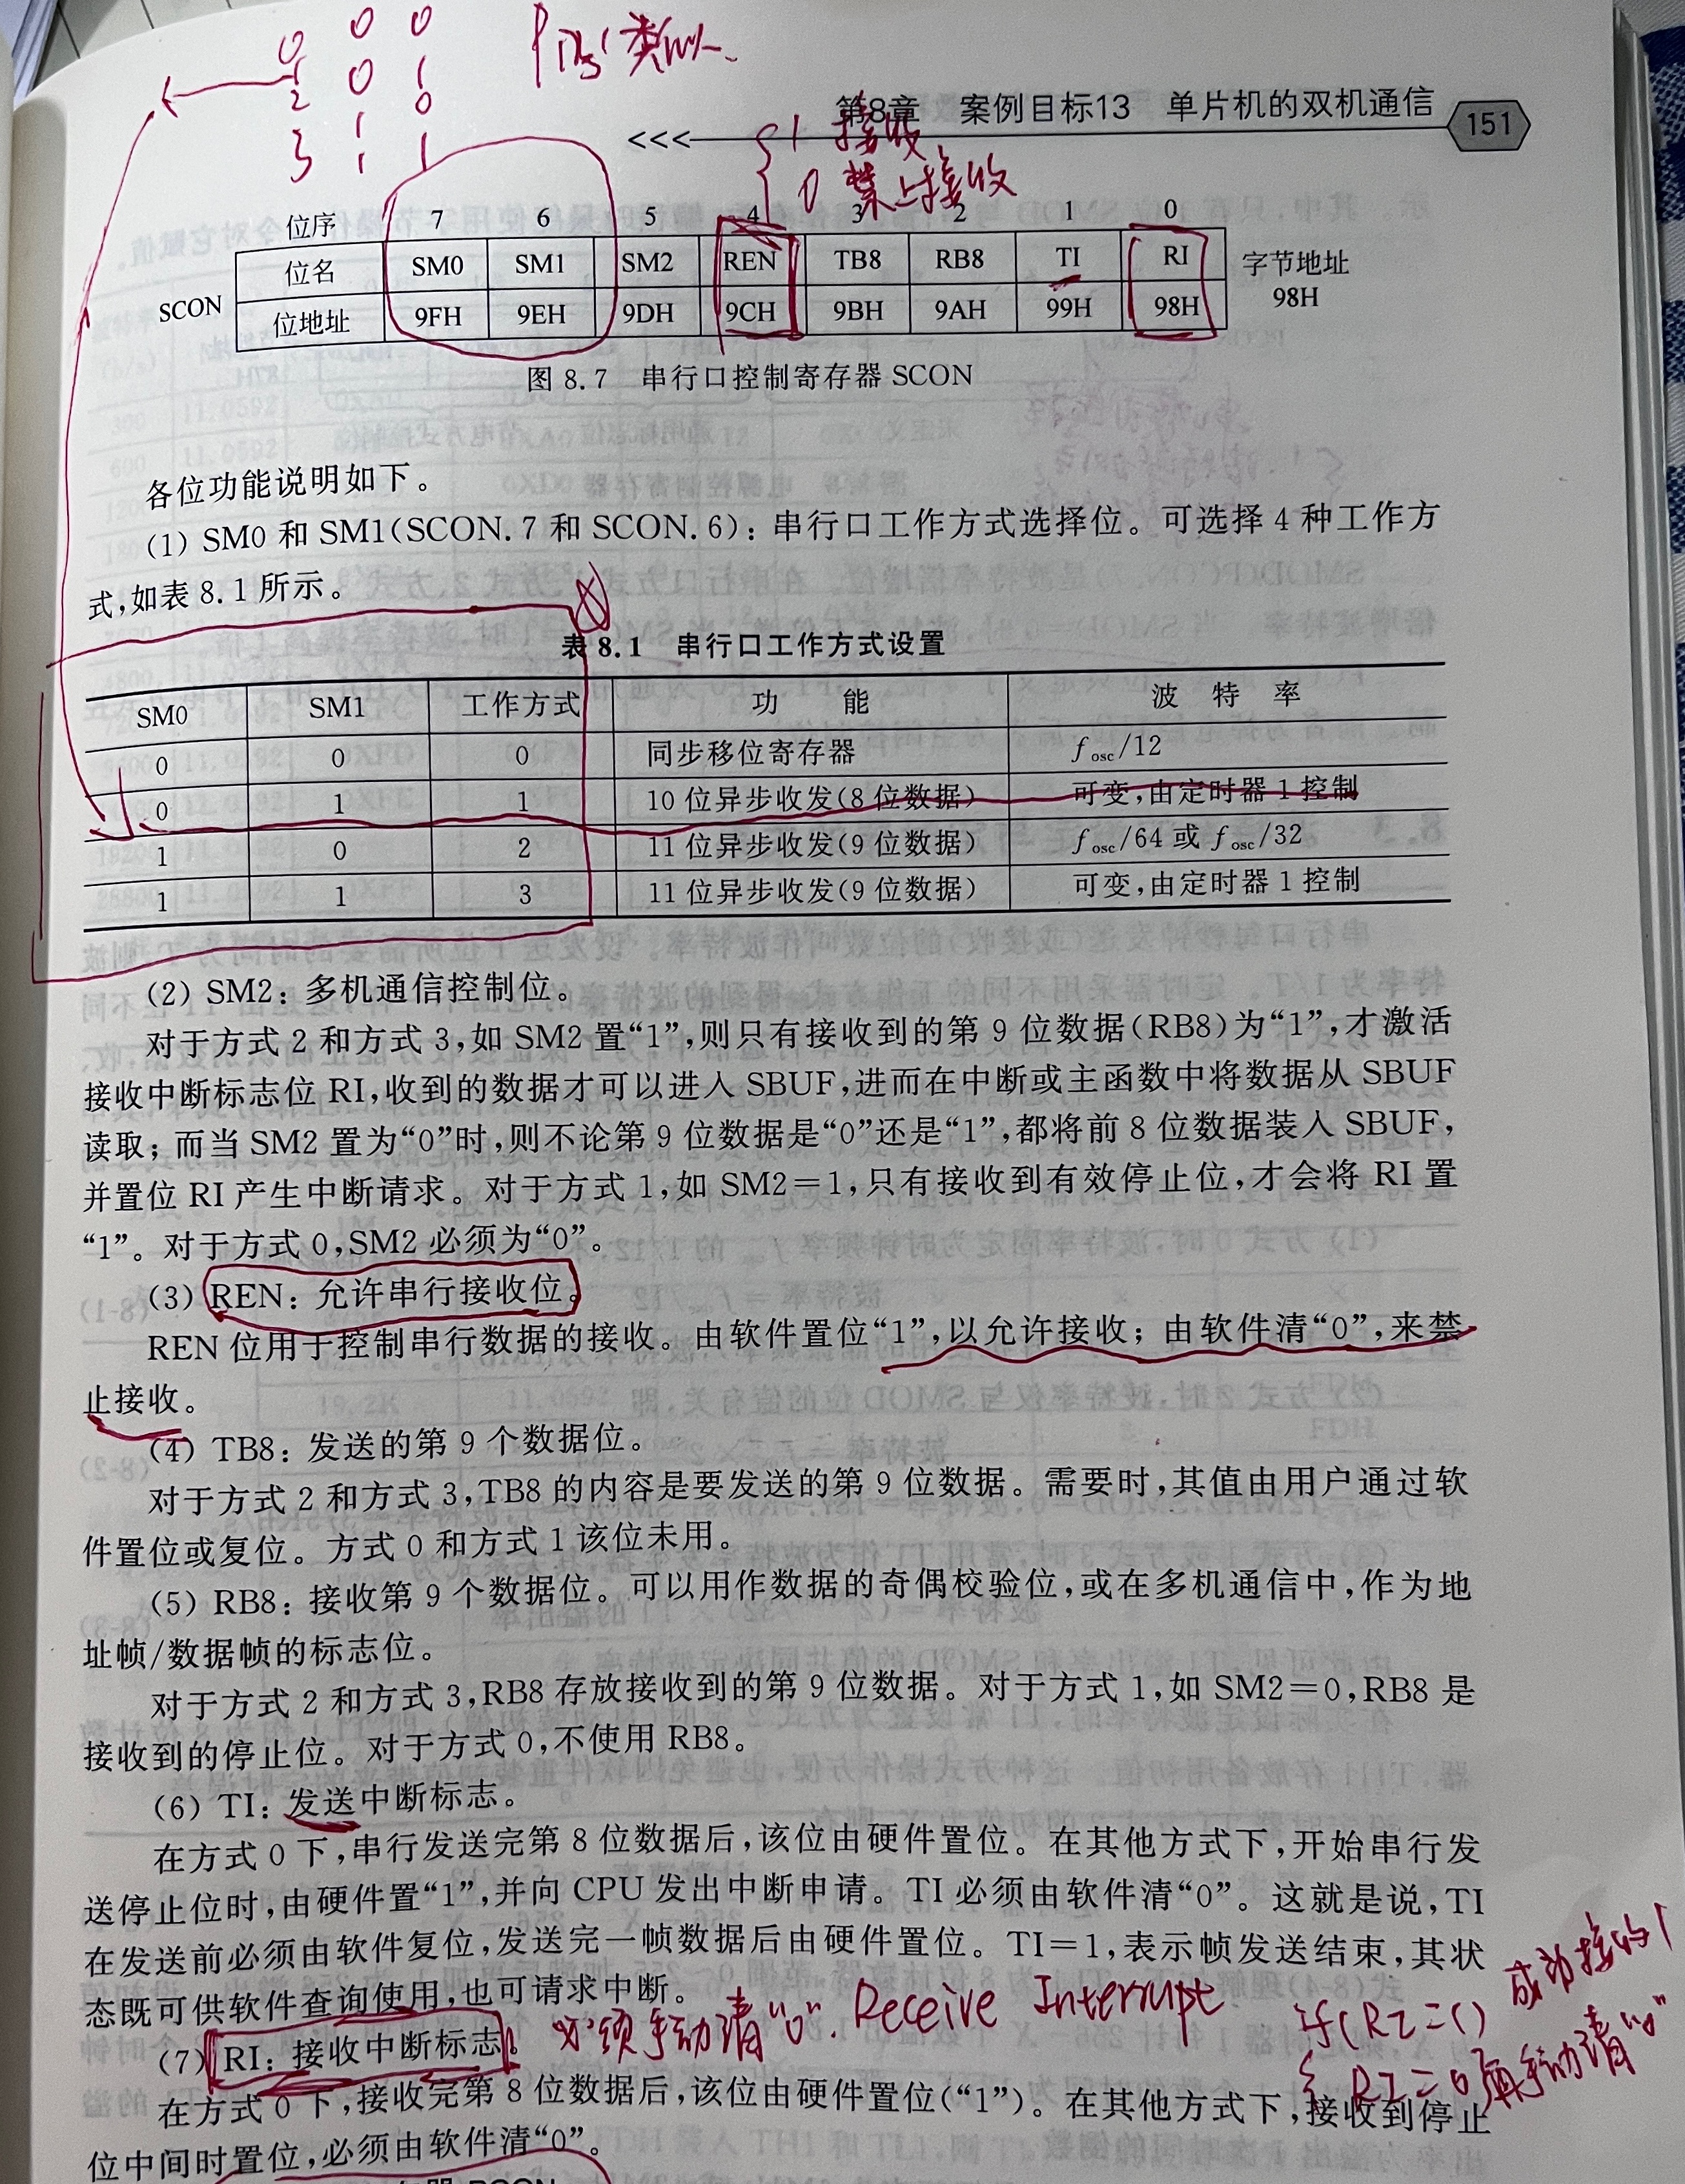 0 0 0
1 0 1
2 1 0
3 1 1
类似
第8章 案例目标13 单片机的双机通信
<<< 151
1 接收
0 禁止接收
位序 7 6 5 4 3 2 1 0
位名 SM0 SM1 SM2 REN TB8 RB8 TI RI 字节地址
SCON 位地址 9FH 9EH 9DH 9CH 9BH 9AH 99H 98H 98H
图 8.7 串行口控制寄存器 SCON
各位功能说明如下。
(1) SM0 和 SM1(SCON.7 和 SCON.6): 串行口工作方式选择位。可选择 4 种工作方
式,如表 8.1 所示。
表 8.1 串行口工作方式设置
SM0 SM1 工作方式 功 能 波 特 率
0 0 0 同步移位寄存器 fosc/12
0 1 1 10 位异步收发(8 位数据) 可变,由定时器 1 控制
1 0 2 11 位异步收发(9 位数据) fosc/64 或 fosc/32
1 1 3 11 位异步收发(9 位数据) 可变,由定时器 1 控制
(2) SM2: 多机通信控制位。
对于方式 2 和方式 3,如 SM2 置“1”,则只有接收到的第 9 位数据(RB8)为“1”,才激活
接收中断标志位 RI,收到的数据才可以进入 SBUF,进而在中断或主函数中将数据从 SBUF
读取; 而当 SM2 置为“0”时,则不论第 9 位数据是“0”还是“1”,都将前 8 位数据装入 SBUF,
并置位 RI 产生中断请求。对于方式 1,如 SM2=1,只有接收到有效停止位,才会将 RI 置
“1”。对于方式 0,SM2 必须为“0”。
(3) REN: 允许串行接收位。
REN 位用于控制串行数据的接收。由软件置位“1”,以允许接收; 由软件清“0”,来禁
止接收。
(4) TB8: 发送的第 9 个数据位。
对于方式 2 和方式 3,TB8 的内容是要发送的第 9 位数据。需要时,其值由用户通过软
件置位或复位。方式 0 和方式 1 该位未用。
(5) RB8: 接收第 9 个数据位。可以用作数据的奇偶校验位,或在多机通信中,作为地
址帧/数据帧的标志位。
对于方式 2 和方式 3,RB8 存放接收到的第 9 位数据。对于方式 1,如 SM2=0,RB8 是
接收到的停止位。对于方式 0,不使用 RB8。
(6) TI: 发送中断标志。
在方式 0 下,串行发送完第 8 位数据后,该位由硬件置位。在其他方式下,开始串行发
送停止位时,由硬件置“1”,并向 CPU 发出中断申请。TI 必须由软件清“0”。这就是说,TI
在发送前必须由软件复位,发送完一帧数据后由硬件置位。TI=1,表示帧发送结束,其状
态既可供软件查询使用,也可请求中断。
(7) RI: 接收中断标志。 必须手动清“0”. Receive Interrupt
if(RI==1) 成功接收1
{ RI=0 须手动清“0”
在方式 0 下,接收完第 8 位数据后,该位由硬件置位(“1”)。在其他方式下,接收到停止
位中间时置位,必须由软件清“0”。